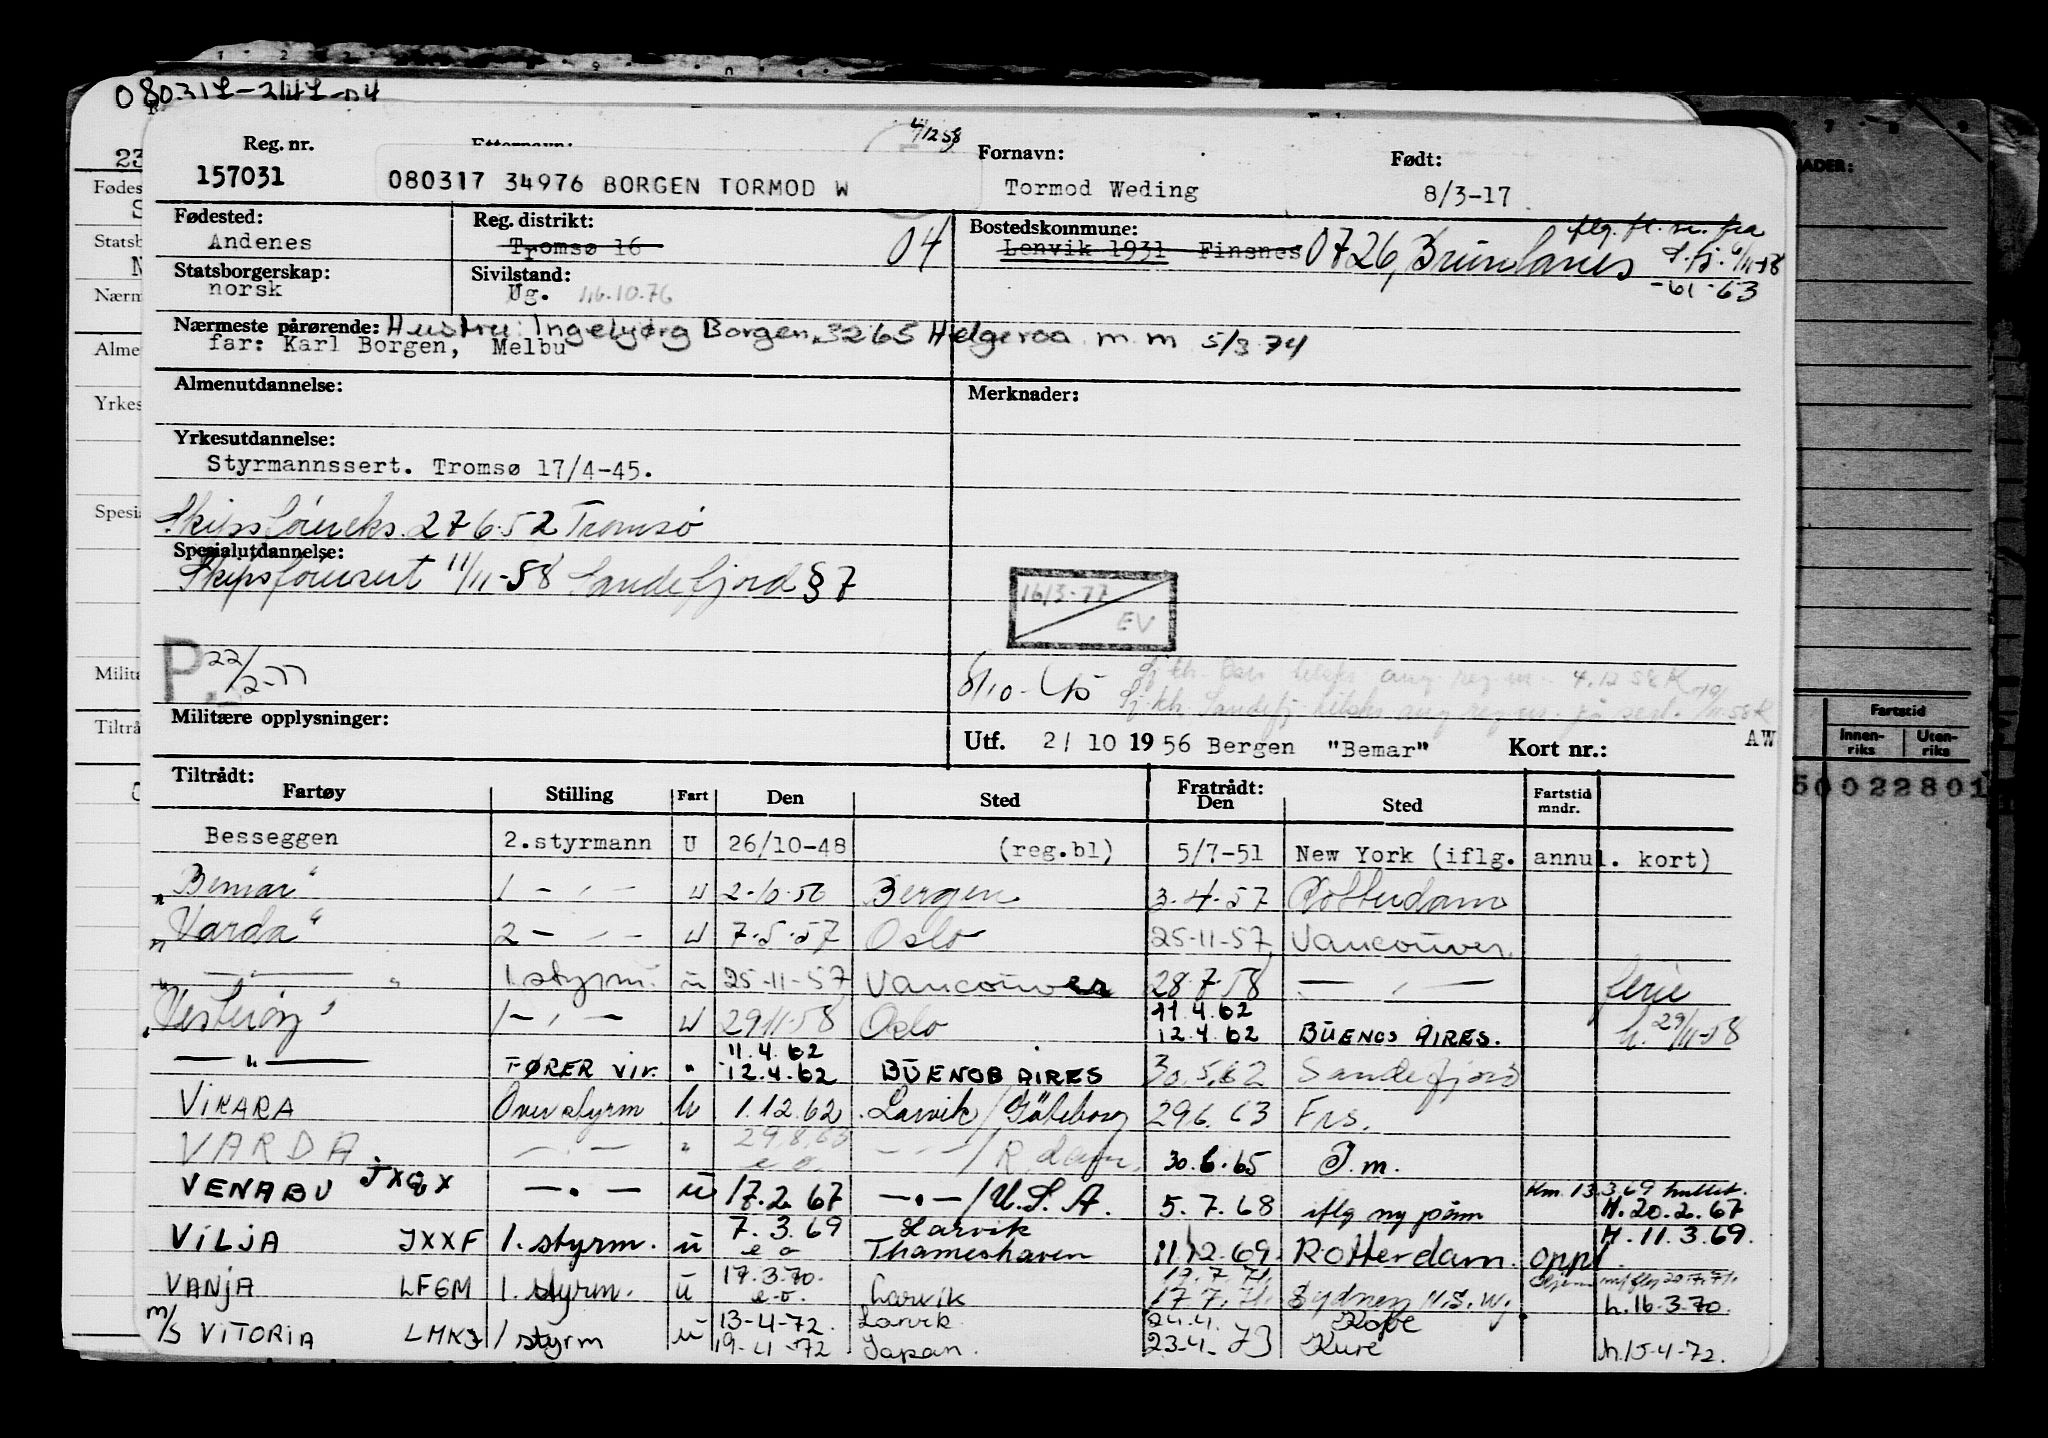 Reg. nr.
4/12 58
Fornavn:
Født:
157031
080317 34976 BORGEN TORMOD W
Tormod Weding
8/3-17
Fødested:
Reg. distrikt:
Bostedskommune:
Andenes
Tromsø 16
04
Lenvik 1931 Finsnes 0726, Brunlanes
Statsborgerskap:
Sivilstand:
norsk
Ug.
-61-63
Nærmeste pårørende: Hustru: Ingebjørg Borgen, 3265 Helgeroa m m 5/3 74
far: Karl Borgen, Melbu
Almenutdannelse:
Merknader:
Yrkesutdannelse:
Styrmannssert. Tromsø 17/4-45.
27 6.52 Tromsø
Spesialutdannelse:
Skipsførersert 11/11-58 Sandefjord § 7
16/3-77
EV
P. 22/2-77
Militære opplysninger:
Utf. 2/ 10 1956 Bergen "Bemar" Kort nr.:
AW
Tiltrådt:
Fratrådt:
Fartøy Stilling Fart Den Sted Den Sted Fartstid mndr.
Besseggen 2.styrmann U 26/10-48 (reg.bl) 5/7-51 New York (iflg. annul. kort)
"Bemar" 1 - " - u 2-10-56 Bergen 3.4.57 Rotterdam
"Varda" 2 - " - u 7.5.57 Oslo 25-11-57 Vancouver
" — " 1.styrm. u 25-11-57 Vancouver 28.7.58 — " — ferie
"Vesterøy" 1 - " - u 29.11.58 Oslo 11.4.62 12.4.62 BUENOS AIRES. h. 29/11-58
— " — FØRER vik. " 11.4.62 12.4.62 BUENOS AIRES 30.5.62 Sandefjord
VIKARA Overstyrm u 1.12.62 Larvik/Göteborg 29.6.63 Frs.
VARDA — " — " 29.8.63 e.o. — " — /R.dam. 30.6.65 P.m.
VENABU JXQX — " — u 17.2.67 — " — /U.S.A. 5.7.68 iflg ny påm H. 20.2.67
VILJA JXXF 1. styrm. u 7.3.69 e o Larvik Thameshaven 11.12.69. Rotterdam oppl. H. 11.3.69.
VANJA LFGM 1. styrm. u 17.3.70. e.o. Larvik 17.7.71. Sydney N.S.W. h.16.3.70.
m/s VITORIA 1 styrm u 13-4-72. 19-4-72 Larvik Japan. 24.4. 23.4.73 Kobe Kure h.15-4-72.
Fartstid
Innenriks
Utenriks
50022801